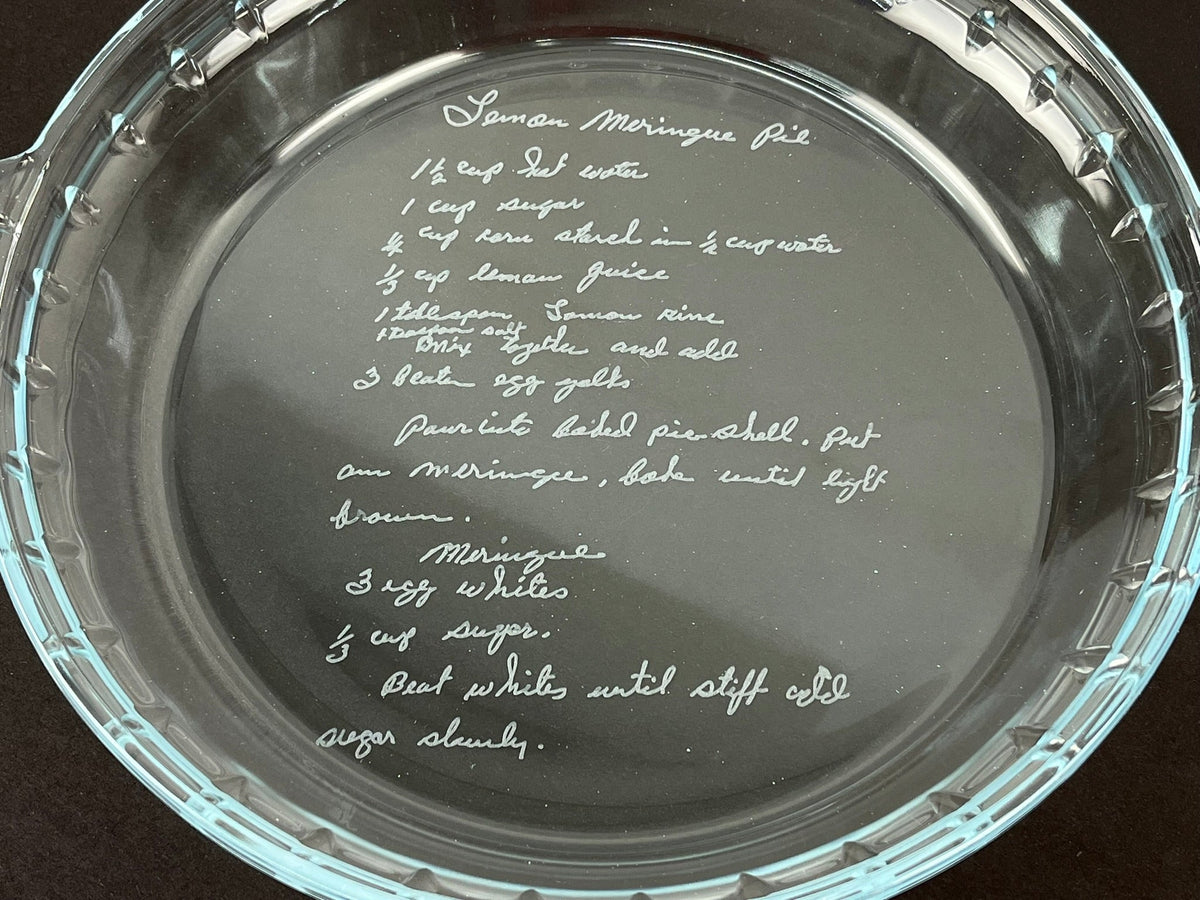 Lemon Meringue Pie
1 1/2 cup hot water
1 cup sugar
1/4 cup corn starch in 1/2 cup water
1/3 cup lemon juice
1 tablespoon Lemon rine
1 teaspoon salt
Mix together and add
3 beaten egg yolks
Pour into baked pie shell. Put
on meringue, bake until light
brown.
Meringue
3 egg whites
1/3 cup sugar.
Beat whites until stiff add
sugar slowly.